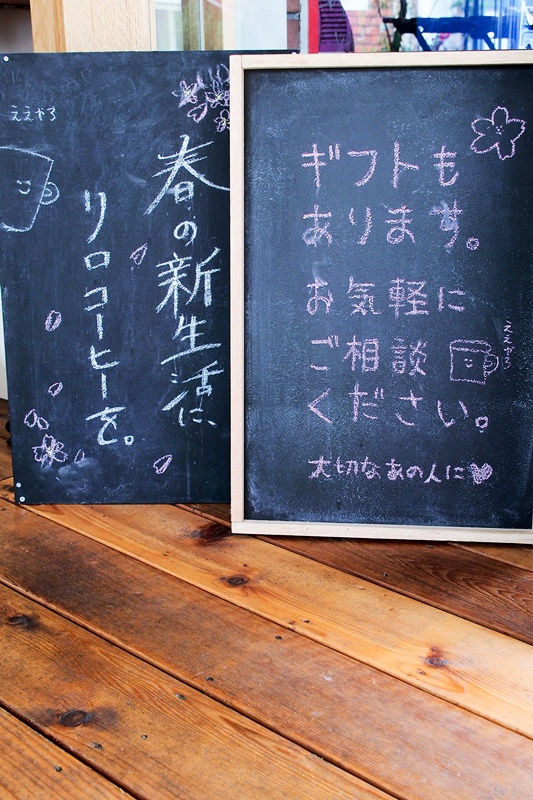 ええやろ
春の新生活に
リロコーヒーを。
ギフトも
あります。
お気軽に
ご相談
ください。
ええやろ
大切なあの人に